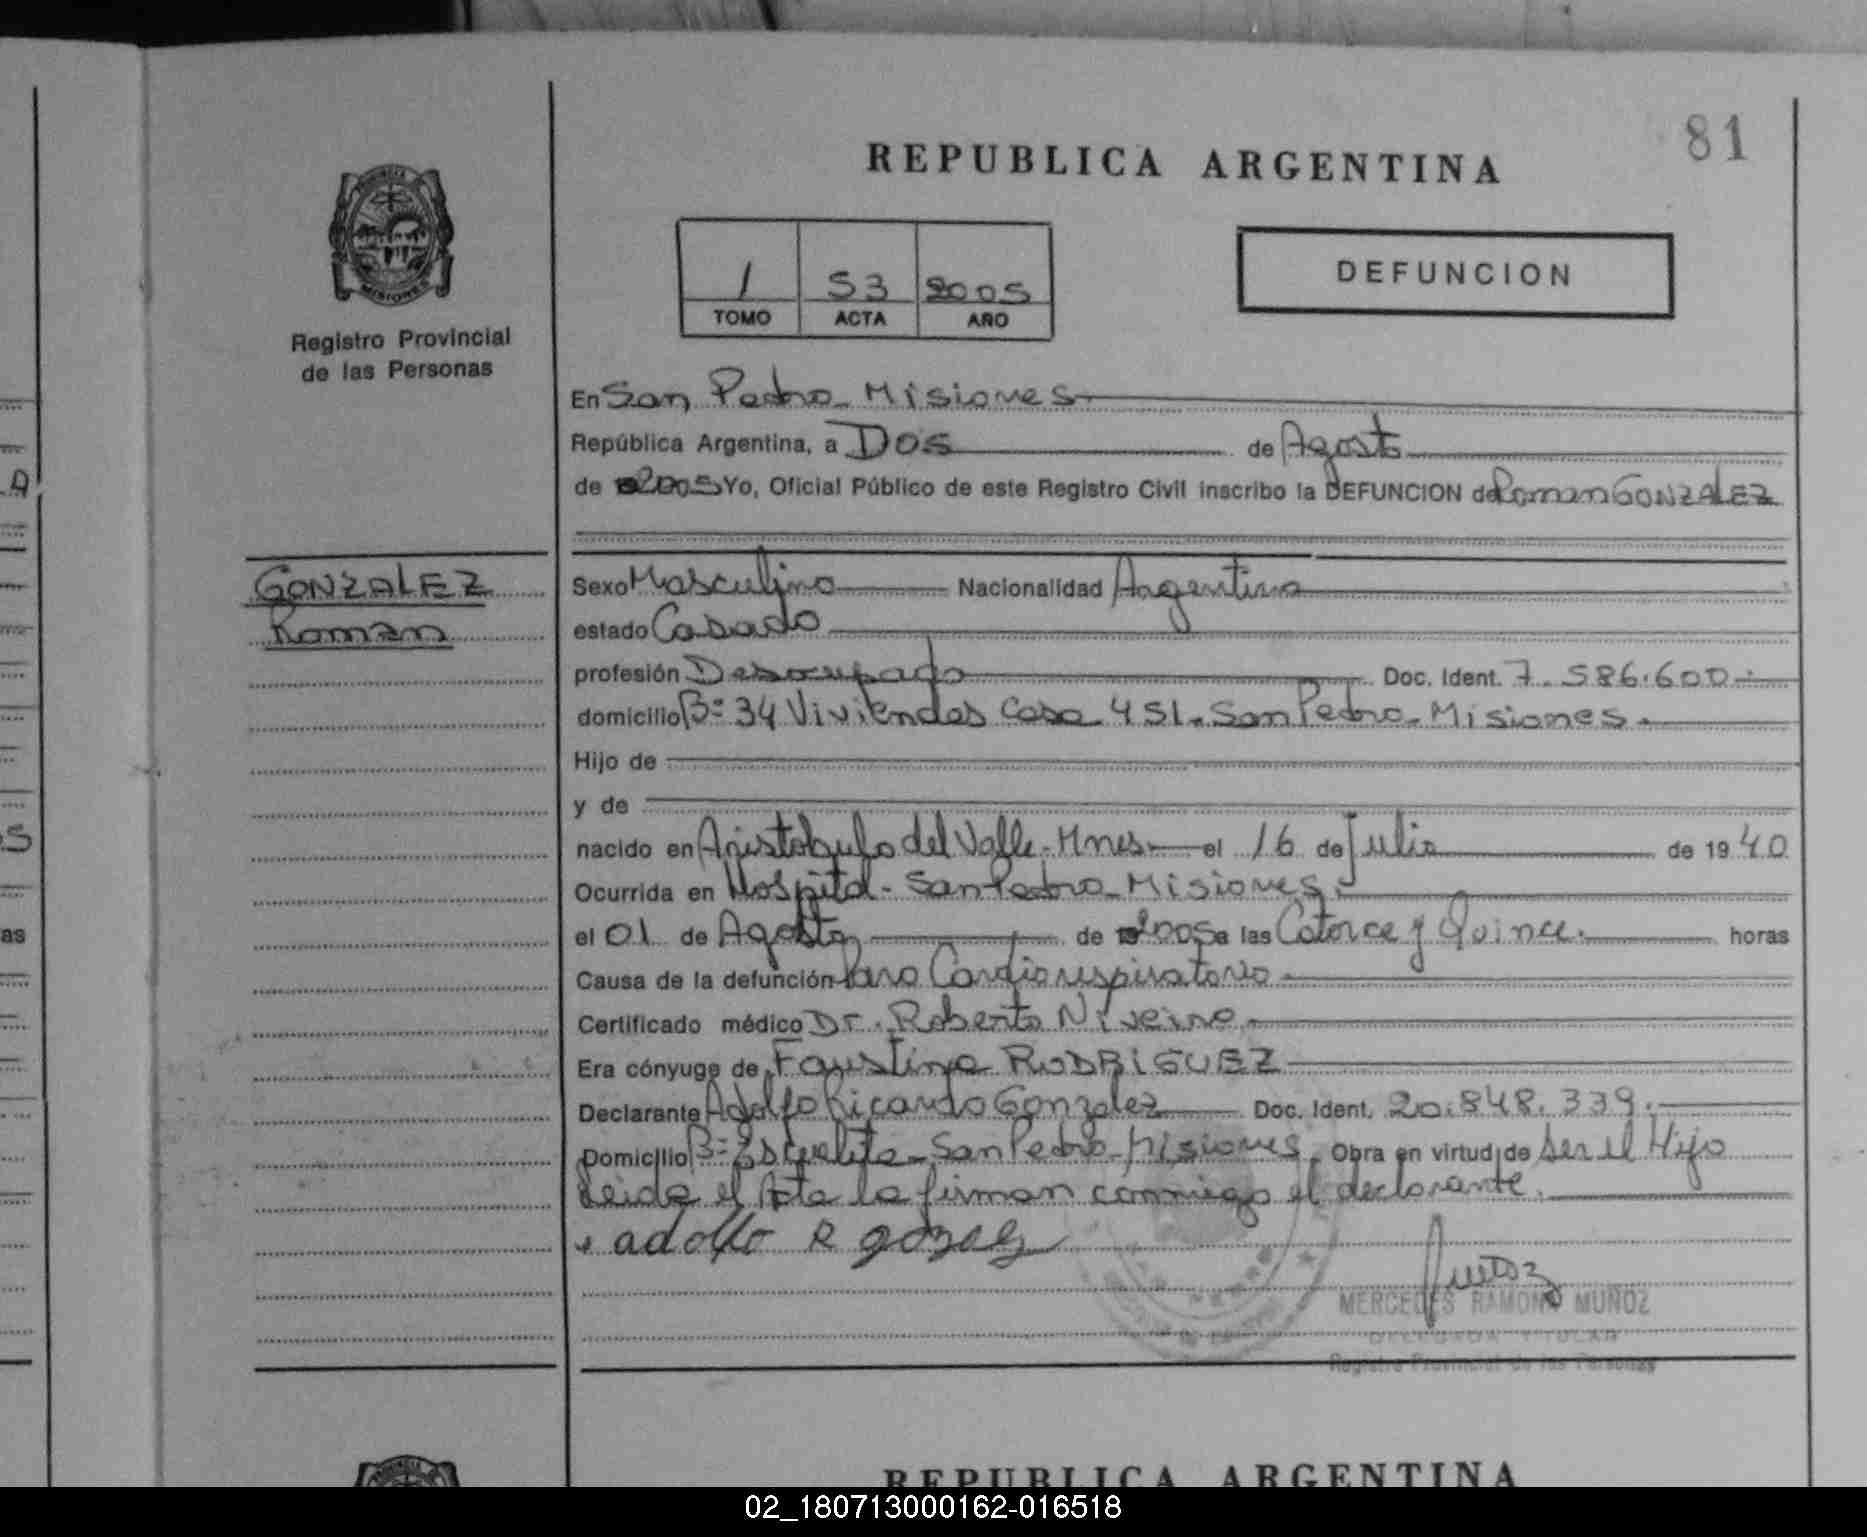 81
REPUBLICA ARGENTINA
PROVINCIA
MISIONES
Registro Provincial
de las Personas
1 53 2005
TOMO ACTA AÑO
DEFUNCION
En San Pedro - Misiones
República Argentina, a Dos de Agosto
de 2005 Yo, Oficial Público de este Registro Civil inscribo la DEFUNCION de Roman GONZALEZ
GONZALEZ
Roman
Sexo Masculino Nacionalidad Argentina
estado Casado
profesión Desocupado Doc. Ident. 7.586.600.
domicilio B= 34 Viviendas Casa 451. San Pedro - Misiones.
Hijo de
y de
nacido en Aristobulo del Valle - Mnes el 16 de Julio de 1940
Ocurrida en Hospital - San Pedro - Misiones.
el 01 de Agosto de 2005 a las Catorce y Quince. horas
Causa de la defunción Paro Cardiorespiratorio
Certificado médico Dr. Roberto
Era cónyuge de Faustina RODRIGUEZ
Declarante Adolfo Ricardo Gonzalez Doc. Ident. 20.848.339.
Domicilio B= Escuelita - San Pedro - Misiones Obra en virtud de ser el Hijo
leida el Acta la firman conmigo el declarante.
adolfo R
MERCEDES RAMONA MUÑOZ
DELEGADA TITULAR
Registro Provincial de las Personas
REPUBLICA ARGENTINA
02_180713000162-016518